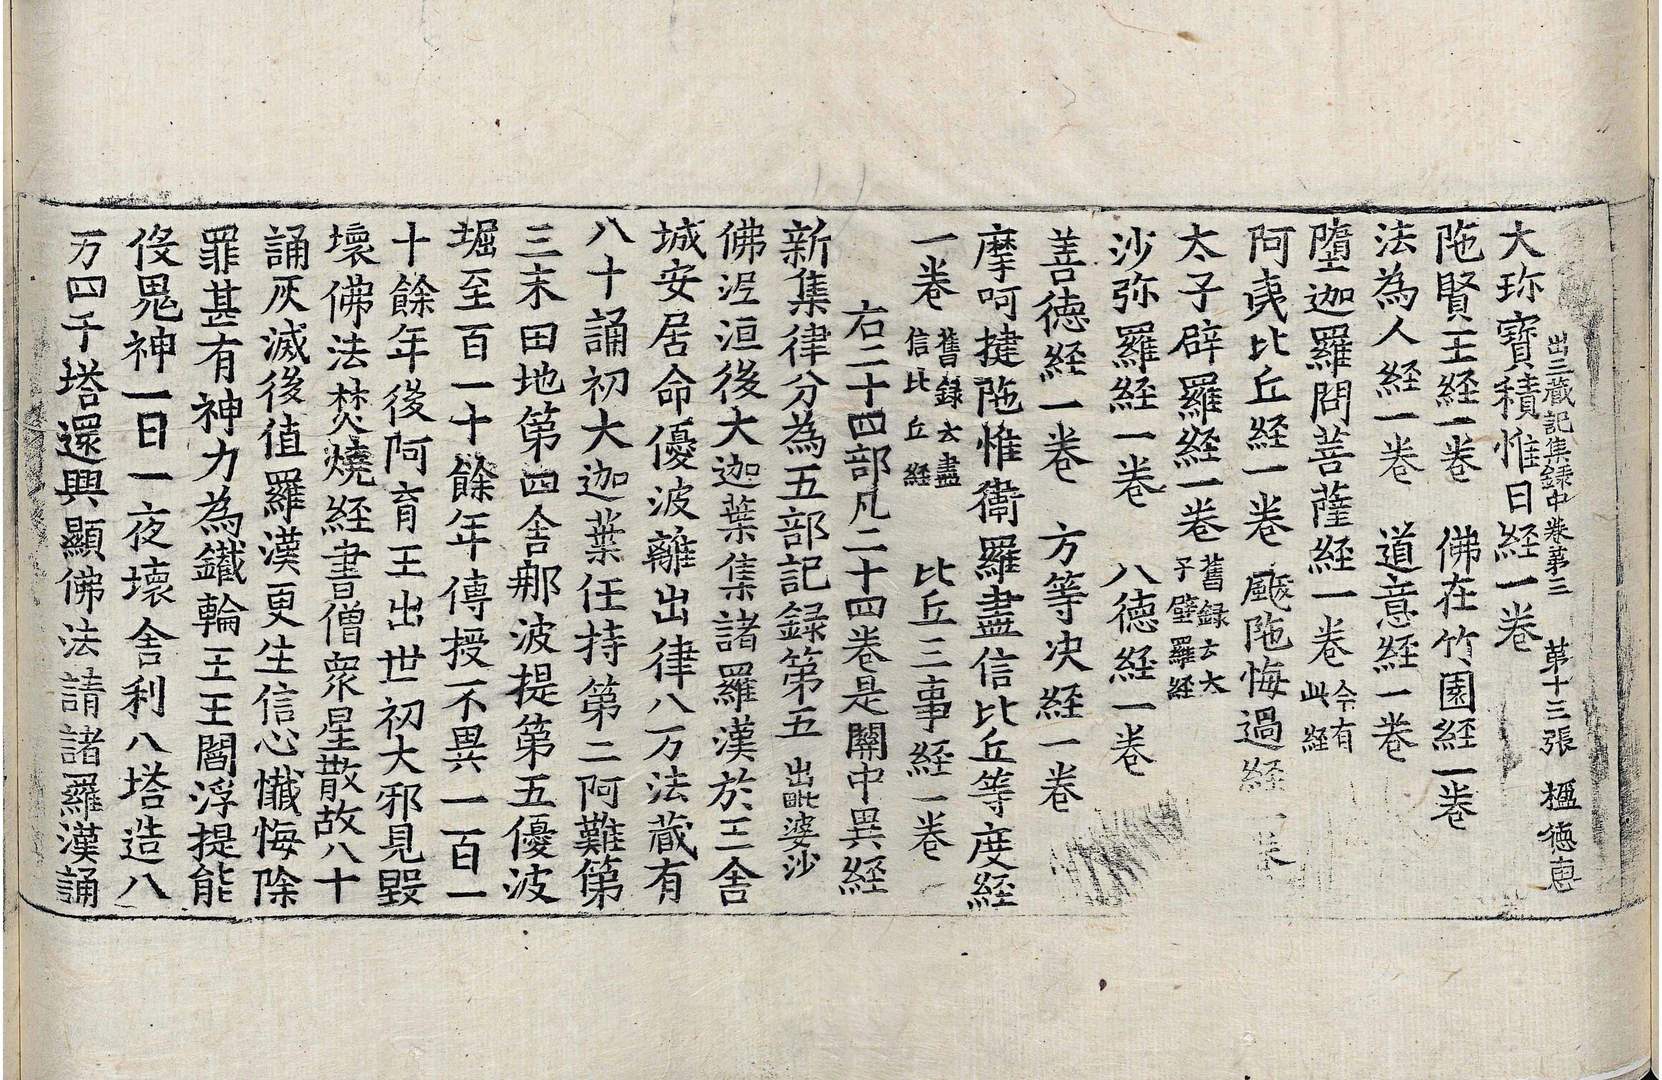 出三蔵記集録中巻第三　第十三張　楹徳恵
大珎寳積惟日経一巻
陁賢王経一巻　佛在竹園経一巻
法為人経一巻　道意経一巻
墮迦羅問菩薩経一巻今有此経
阿夷比丘経一巻　颰陁悔過経一巻
太子辟羅経一巻舊録云太子璧羅経
沙弥羅経一巻　八德経一巻
善德経一巻　方等决経一巻
摩呵揵陁惟衞羅盡信比丘等度経
一巻舊録云盡信比丘経　比丘三事経一巻
右二十四部凡二十四巻是關中異経
新集律分為五部記録第五　出毗婆沙
佛泥洹後大迦葉集諸羅漢於王舎
城安居命優波離出律八万法蔵有
八十誦初大迦葉任持第二阿難第
三末田地第四舎那波提第五優波
堀至百一十餘年傳授不異一百一
十餘年後阿育王出世初大邪見毀
壞佛法焚燒経書僧衆星散故八十
誦灰滅後值羅漢更生信心懺悔除
罪甚有神力為鐵輪王王閻浮提能
伇鬼神一日一夜壞舎利八塔造八
万四千塔還興顯佛法請諸羅漢誦